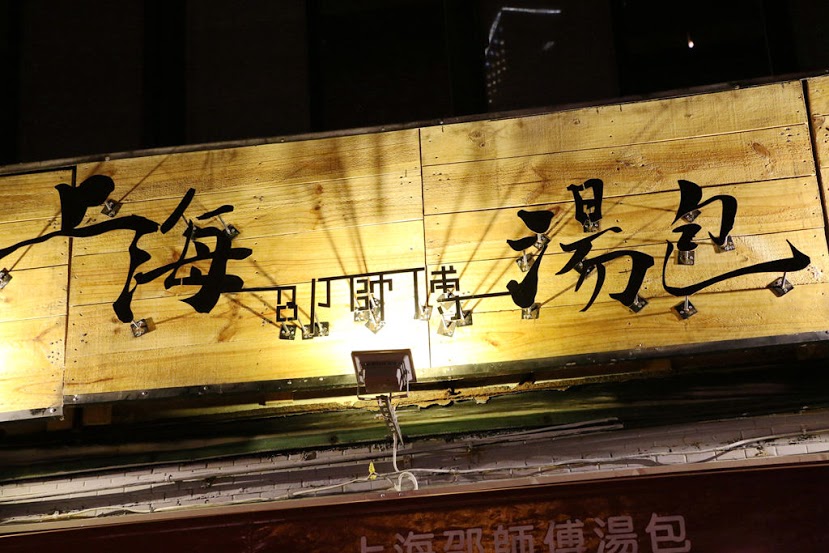 上海邵師傅湯包
上海邵師傅湯包